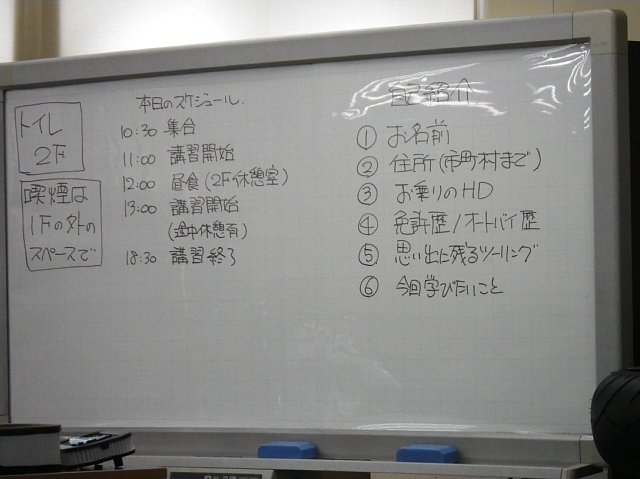 トイレ
2F
喫煙は
1Fの外の
スペースで
本日のスケジュール.
10:30 集合
11:00 講習開始
12:00 昼食(2F休憩室)
13:00 講習開始
(途中休憩有)
18:30 講習終了
自己紹介
① お名前
② 住所(市町村まで)
③ お乗りのHD
④ 免許歴/オートバイ歴
⑤ 思い出に残るツーリング
⑥ 今回学びたいこと